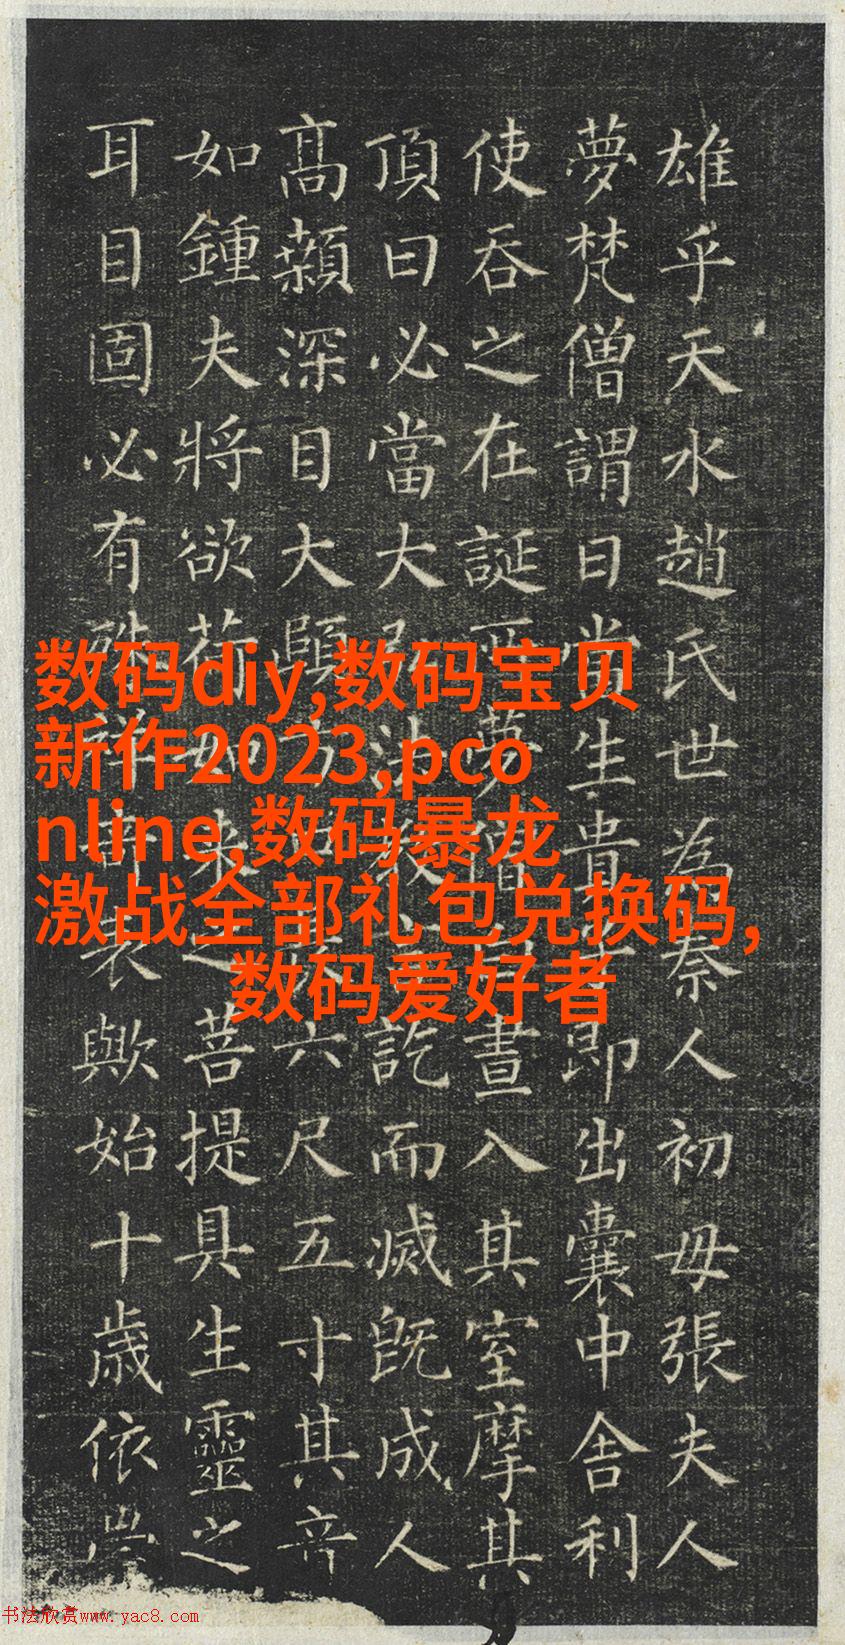 雄乎天水趙氏世為秦人初母張夫人
夢梵僧謂曰當生貴即出囊中舍利
使吞之在誕所夢僧晝入其室摩其
頂曰必當大法教訖而滅既成人
高顙深目大頤方六尺五寸其音
如鍾夫將欲荷如來之菩提具生靈之
耳目固必有殊祥表歟始十歲依
数码diy,数码宝贝
新作2023,pco
nline,数码暴龙
激战全部礼包兑换码,
数码爱好者
书法欣赏www.yac8.com